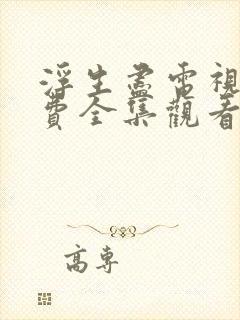 浮生盡電視
費全集觀看
高專